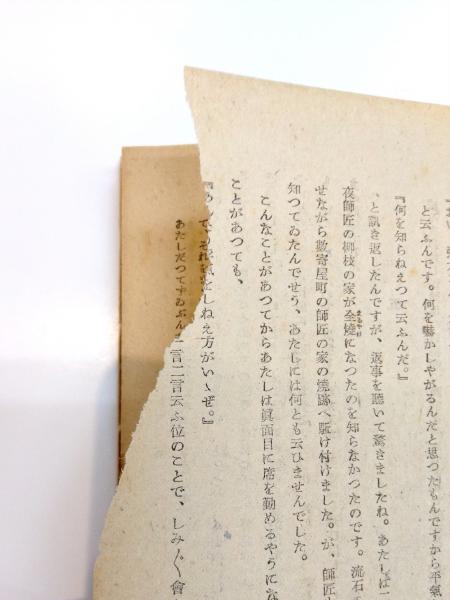 と云ふんです。何を魅かしやがるんだと思つたもんですから平氣
『何を知らねえつて云ふんだ。』
と訊き返したんですが、返事を聽いて驚きましたね。あたしは一
夜師匠の柳枝の家が全燒になつたのを知らなかつたのです。流石
まるやけ
せながら數寄屋町の師匠の家の燒跡へ駈け付けました。が、師匠
知つてゐたんでせう、あたしには何とも云ひませんでした。
こんなことがあつてからあたしは眞面目に席を勤めるやうにな
ことがあつても、
それ をしねえ方がいゝぜ。』
あたしだつてずゐぶん 二言二言云ふ位のことで、しみ〲會